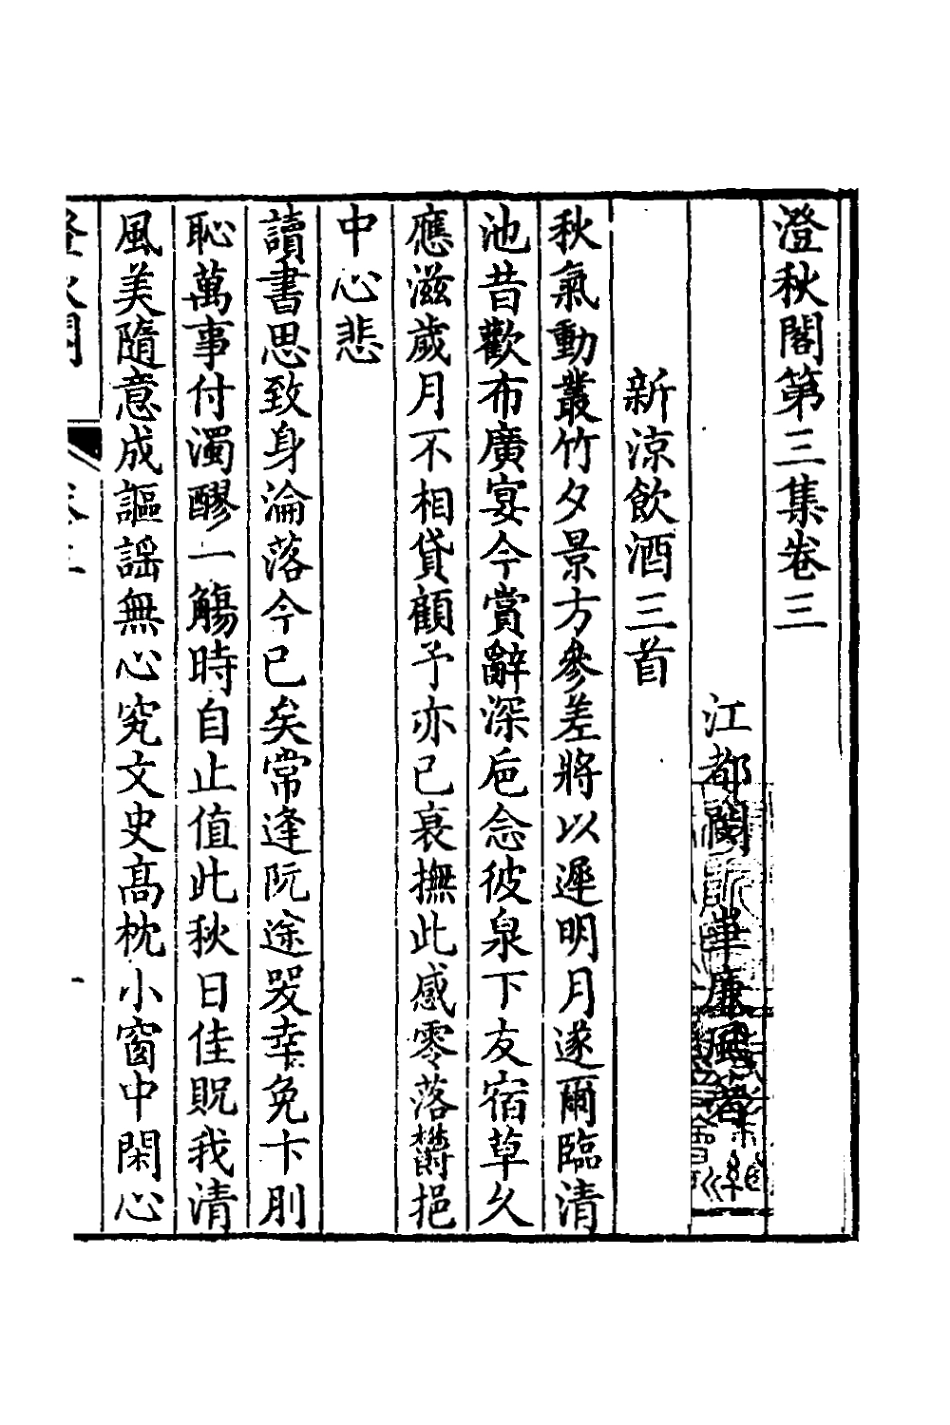 澄秋閣第三集卷三
江都閔華廉風著
新涼飲酒三首
秋氣動叢竹夕景方參差將以遲明月遂爾臨清
池昔歡布廣宴今賞辭深巵念彼泉下友宿草久
應滋歲月不相貸顧予亦已衰撫此感零落欝挹
中心悲
讀書思致身淪落今已矣常逢阮途哭幸免卞刖
恥萬事付濁醪一觴時自止值此秋日佳貺我清
風美隨意成謳謡無心究文史高枕小窗中閑心